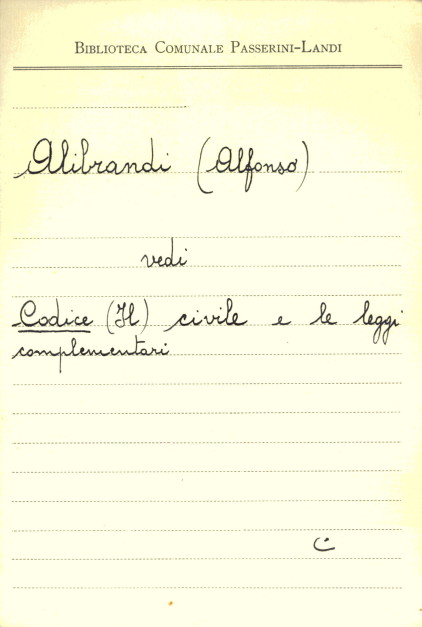 BIBLIOTECA COMUNALE PASSERINI-LANDI
Alibrandi (Alfonso)
vedi
Codice (Il) civile e le leggi
complementari